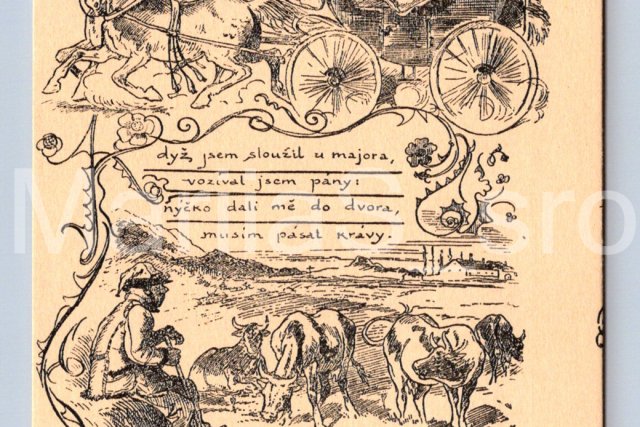 dyž jsem sloužil u majora,
vozíval jsem pány:
nýčko dali mě do dvora,
musím pásat krávy.